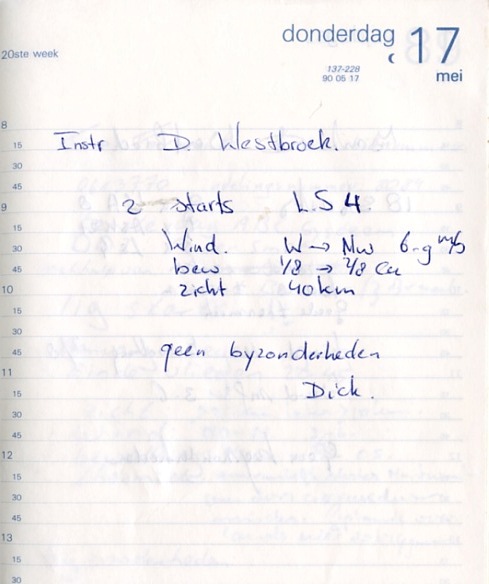 donderdag 17
20ste week
137-228
90 05 17
mei
8
15 Instr D. Westbroek.
30
45
9 2 starts L.S 4.
15
30 Wind. W → NW 6-9 m/s
45 bew 1/8 → 2/8 Cu
10 zicht 40 km
15
30
45 geen byzonderheden
11
15 Dick.
30
45
12
15
30
45
13
15
30